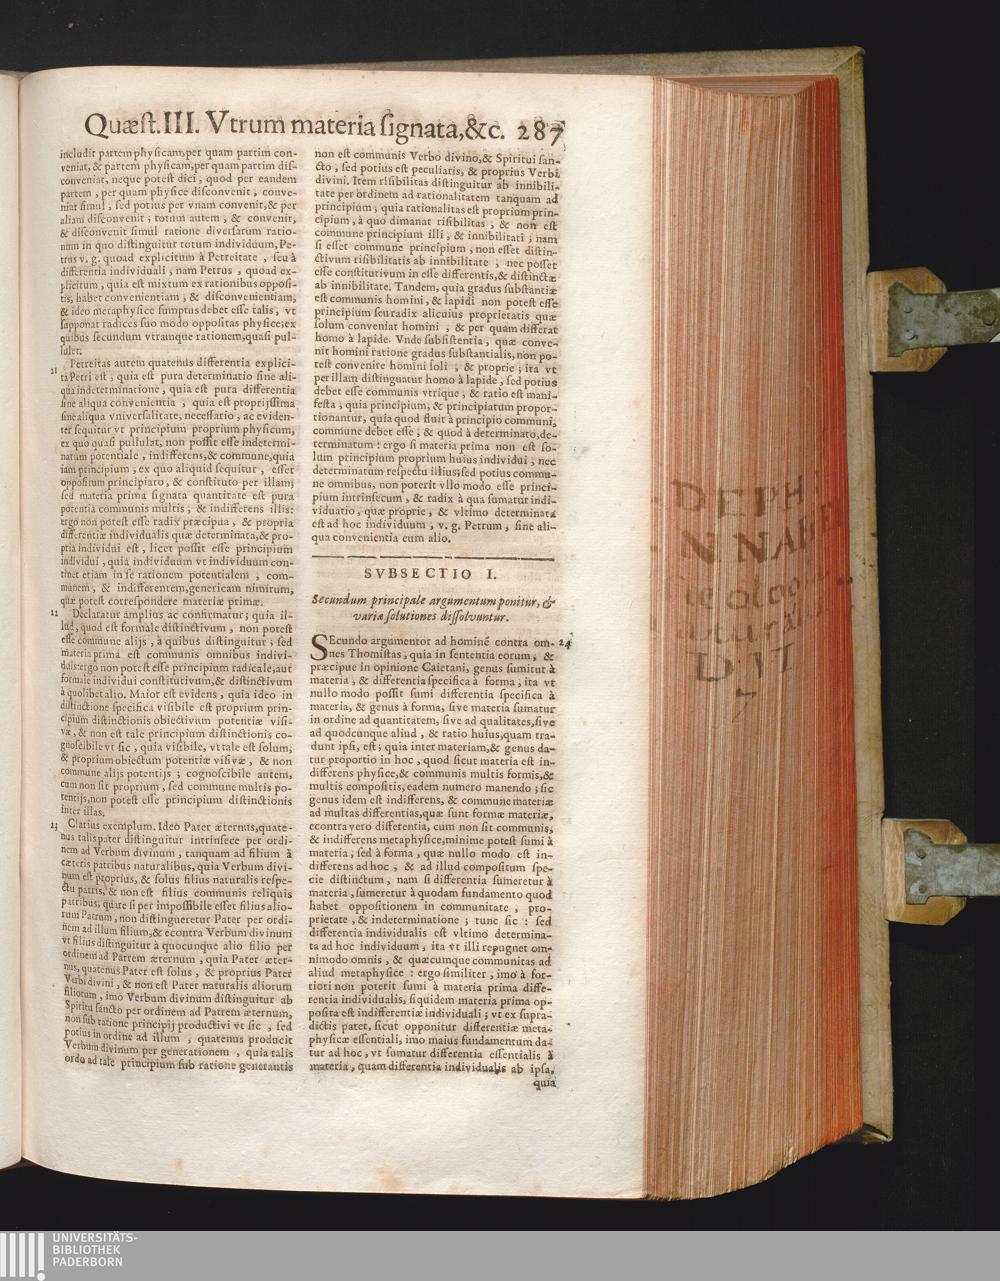 Quæst.III. Vtrum materia signata,&c. 287
includit partem physicam,per quam partim con-
veniat, & partem physicam,per quam partim dis-
conveniat, neque potest dici , quod per eandem
partem , per quam physice disconvenit , conve-
niat simul , sed potius per vnam convenit,& per
aliam disconvenit ; totum autem , & convenit,
& disconvenit simul ratione diversarum ratio-
num in quo distinguitur totum individuum, Pe-
trus v. g. quoad explicitum à Petreitate , seu à
differentia individuali , nam Petrus , quoad ex-
plicitum , quia est mixtum ex rationibus opposi-
tis, habet convenientiam , & disconvenientiam,
& ideo metaphysice sumptus debet esse talis , vt
supponat radices suo modo oppositas physice;ex
quibus secundum vtramque rationem,quasi pul-
lulet.
21 Petreitas autem quatenus differentia explici-
ta Petri est , quia est pura determinatio sine ali-
qua indeterminatione , quia est pura differentia
sine aliqua convenientia , quia est propriissima
sine aliqua vniversalitate, necessario , ac eviden-
ter sequitur vt principium proprium physicum,
ex quo quasi pullulat, non possit esse indetermi-
natum potentiale , indifferens,& commune,quia
iam principium , ex quo aliquid sequitur , esset
oppositum principiato , & constituto per illam;
sed materia prima signata quantitate est pura
potentia communis multis , & indifferens illis:
ergo non potest esse radix præcipua , & propria
differentiæ individualis quæ determinata,& pro-
pria individui est , licet possit esse principium
individui , quia individuum vt individuum con-
tinet etiam in se rationem potentialem , com-
munem , & indifferentem,genericam nimirum,
quæ potest correspondere materiæ primæ.
22 Declaratur amplius ac confirmatur; quia il-
lud, quod est formale distinctivum , non potest
esse commune alijs , à quibus distinguitur ; sed
materia prima est communis omnibus indivi-
duis:ergo non potest esse principium radicale,aut
formale individui constitutivum,& distinctivum
à quolibet alio. Maior est evidens , quia ideo in
distinctione specifica visibile est proprium prin-
cipium distinctionis obiectivum potentiæ visi-
væ , & non est tale principium distinctionis co-
gnoscibile vt sic , quia visibile, vt tale est solum,
& proprium obiectum potentiæ visivæ , & non
commune alijs potentijs ; cognoscibile autem,
cum non sit proprium , sed commune multis po-
tentijs,non potest esse principium distinctionis
inter illas.
23 Clarius exemplum. Ideo Pater æternus,quate-
nus talis pater distinguitur intrinsece per ordi-
nem ad Verbum divinum , tanquam ad filium à
cæteris patribus naturalibus, quia Verbum divi-
num est proprius, & solus filius naturalis respe-
ctu patris, & non est filius communis reliquis
patribus, quare si per impossibile esset filius alio-
rum Patrum , non distingueretur Pater per ordi-
nem ad illum filium,& econtra Verbum divinum
vt filius distinguitur à quocunque alio filio per
ordinem ad Patrem æternum , quia Pater æter-
nus, quatenus Pater est solus , & proprius Pater
Verbi divini , & non est Pater naturalis aliorum
filiorum , imo Verbum divinum distinguitur ab
Spiritu sancto per ordinem ad Patrem æternum,
non sub ratione principij productivi vt sic , sed
potius in ordine ad illum , quatenus producit
Verbum divinum per generationem , quia talis
ordo ad tale principium sub ratione generantis
non est communis Verbo divino,& Spiritui san-
cto , sed potius est peculiaris, & proprius Verbi
divini. Item risibilitas distinguitur ab innibili-
tate per ordinem ad rationalitatem tanquam ad
principium , quia rationalitas est proprium prin-
cipium , à quo dimanat risibilitas , & non est
commune principium illi , & innibilitati ; nam
si esset commune principium , non esset distin-
ctivum risibilitatis ab innibilitate , nec posset
esse constitutivum in esse differentis,& distinctæ
ab innibilitate. Tandem, quia gradus substantiæ
est communis homini , & lapidi non potest esse
principium seu radix alicuius proprietatis quæ
solum conveniat homini , & per quam differat
homo à lapide. Vnde subsistentia , quæ conve-
nit homini ratione gradus substantialis, non po-
test convenire homini soli , & proprie ; ita vt
per illam distinguatur homo à lapide , sed potius
debet esse communis vtrique ; & ratio est mani-
festa , quia principium, & principiatum propor-
tionantur, quia quod fluit à principio communi,
commune debet esse , & quod à determinato,de-
terminatum : ergo si materia prima non est so-
lum principium proprium huius individui , nec
determinatum respectu illius;sed potius commu-
ne omnibus, non poterit vllo modo esse princi-
pium intrinsecum , & radix à qua sumatur indi-
viduatio , quæ proprie , & vltimo determinata
est ad hoc individuum , v. g. Petrum , sine ali-
qua convenientia cum alio.
SVBSECTIO I.
Secundum principale argumentum ponitur, &
variæ solutiones dissolvuntur.
SEcundo argumentor ad hominē contra om- 24
nes Thomistas , quia in sententia eorum , &
præcipue in opinione Caietani, genus sumitur à
materia , & differentia specifica à forma , ita vt
nullo modo possit sumi differentia specifica à
materia, & genus à forma, sive materia sumatur
in ordine ad quantitatem, sive ad qualitates,sive
ad quodcunque aliud , & ratio huius,quam tra-
dunt ipsi, est ; quia inter materiam,& genus da-
tur proportio in hoc , quod sicut materia est in-
differens physice,& communis multis formis,&
multis compositis, eadem numero manendo ; sic
genus idem est indifferens, & commune materiæ
ad multas differentias,quæ sunt formæ materiæ,
econtra vero differentia, cum non sit communis,
& indifferens metaphysice,minime potest sumi à
materia , sed à forma , quæ nullo modo est in-
differens ad hoc , & ad illud compositum spe-
cie distinctum , nam si differentia sumeretur à
materia , sumeretur à quodam fundamento quod
habet oppositionem in communitate , pro-
prietate , & indeterminatione ; tunc sic : sed
differentia individualis est vltimo determina-
ta ad hoc individuum , ita vt illi repugnet om-
nimodo omnis , & quæcumque communitas ad
aliud metaphysice : ergo similiter , imo à for-
tiori non poterit sumi à materia prima diffe-
rentia individualis, siquidem materia prima op-
posita est indifferentiæ individuali ; vt ex supra-
dictis patet, sicut opponitur differentiæ meta-
physicæ essentiali, imo maius fundamentum da-
tur ad hoc , vt sumatur differentia essentialis à
materia , quam differentia individualis ab ipsa,
quia
UNIVERSITÄTS-
BIBLIOTHEK
PADERBORN